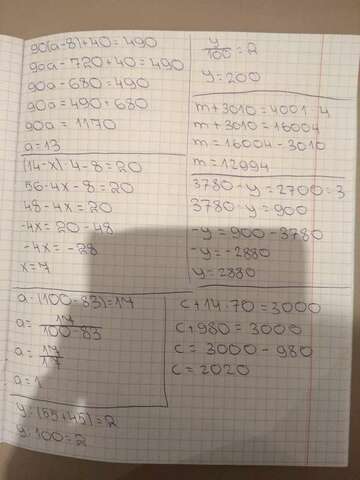 90(a-8)+40=490
90a-720+40=490
90a-680=490
90a=490+680
90a=1170
a=13
(14-x)·4-8=20
56-4x-8=20
48-4x=20
-4x=20-48
-4x=-28
x=7
a:(100-83)=17
a=17/100-83
a=17/17
a=1
y:(55+45)=2
y:100=2
y/100=2
y=200
m+3010=4001·4
m+3010=16004
m=16004-3010
m=12994
3780-y=2700:3
3780-y=900
-y=900-3780
-y=-2880
y=2880
c+14·70=3000
c+980=3000
c=3000-980
c=2020